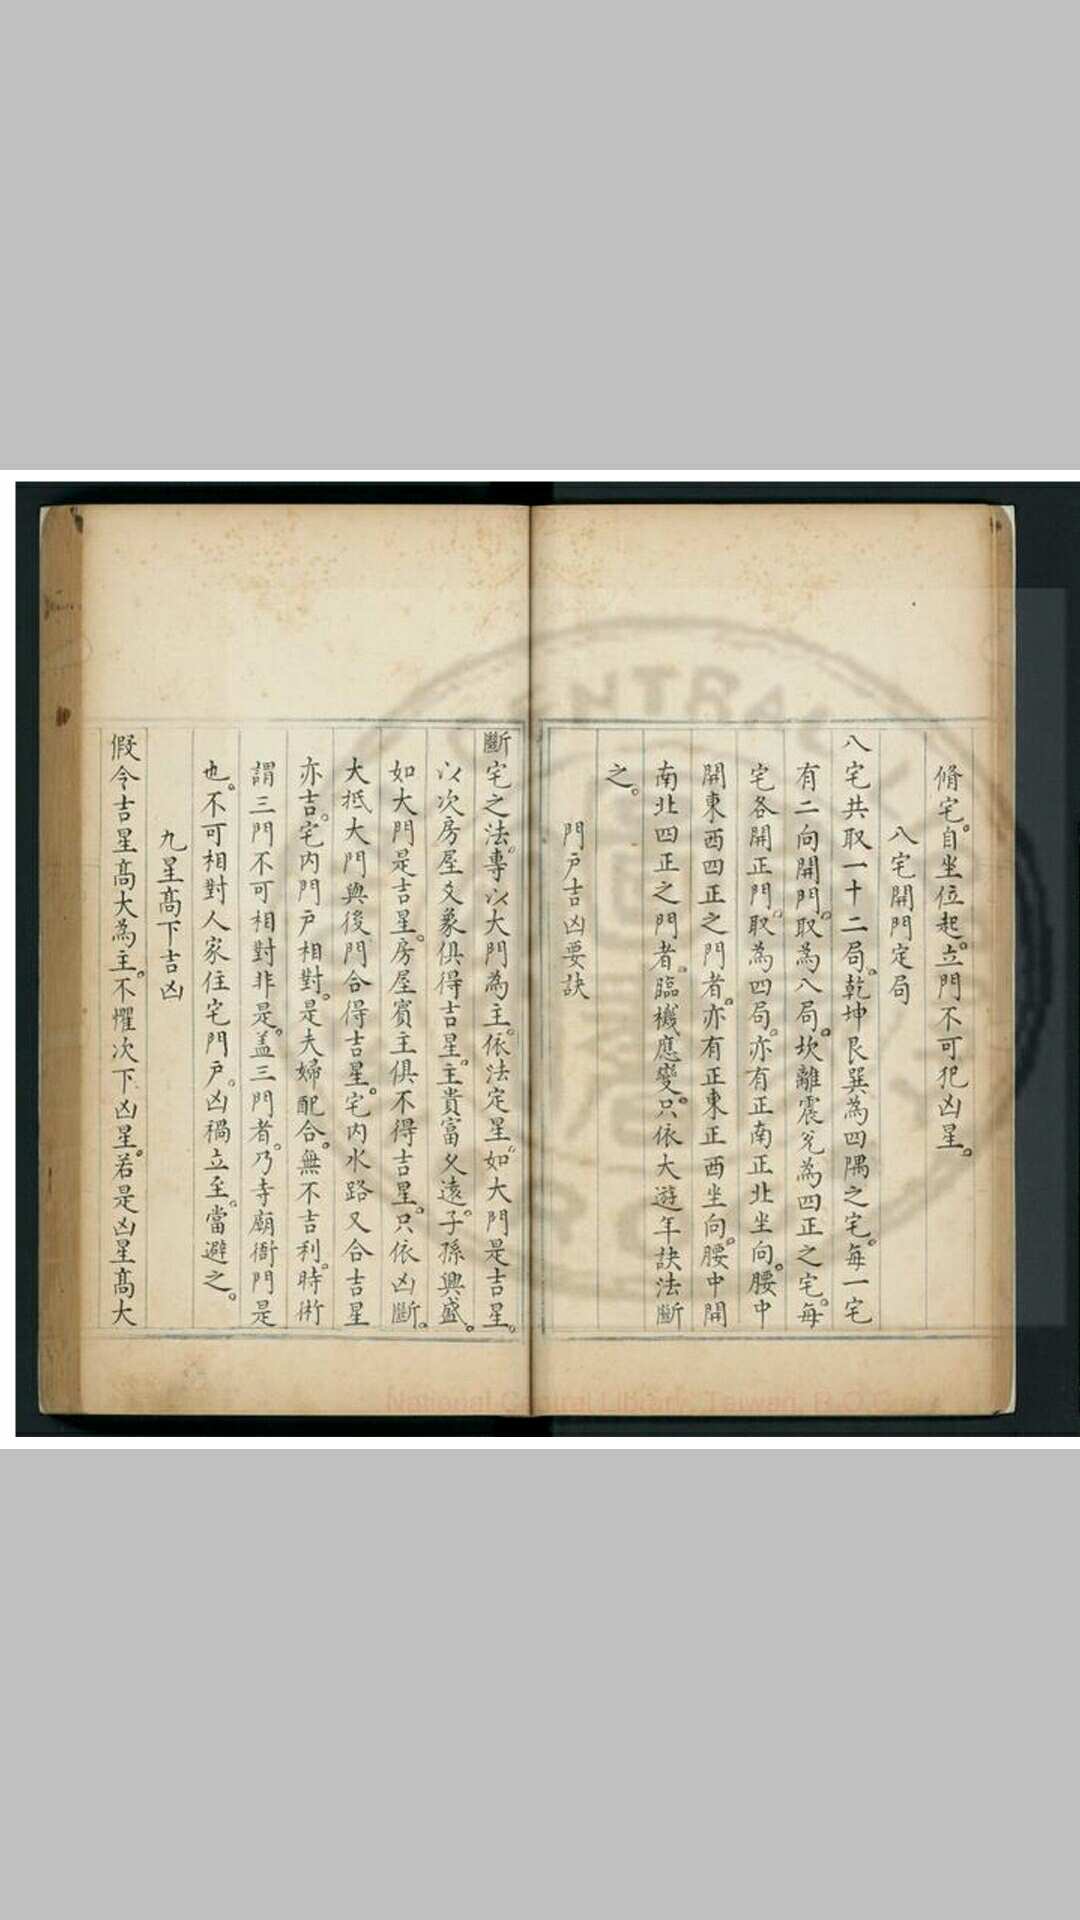 脩宅。自坐位起。立門不可犯凶星。
八宅開門定局
八宅共取一十二局。乾坤艮巽為四隅之宅。每一宅
有二向開門。取為八局。坎離震兌為四正之宅。每
宅各開正門。取為四局。亦有正南正北坐向。腰中
開東西四正之門者。亦有正東正西坐向。腰中開
南北四正之門者。臨機應變。只依大遊年訣法斷
之。
門戶吉凶要訣
斷宅之法。專以大門為主。依法定星。如大門是吉星。
以次房屋爻象俱得吉星。主貴富久遠。子孫興盛。
如大門是吉星。房屋賓主俱不得吉星。只依凶斷。
大抵大門與後門合得吉星。宅內水路又合吉星
亦吉。宅內門戶相對。是夫婦配合。無不吉利。時術
謂三門不可相對非是。盖三門者。乃寺廟衙門是
也。不可相對人家住宅門戶。凶禍立至。當避之。
九星高下吉凶
假令吉星高大為主。不懼次下凶星。若是凶星高大
National Central Library, Taiwan, R.O.C.